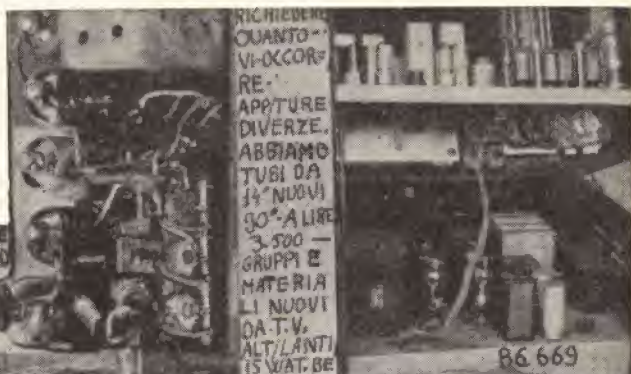 RICHIEDERE
QUANTO
VI-OCCOR=
RE.
APPTURE
DIVERZE.
ABBIAMO
TUBI DA
14" NUOVI
90°-A LIRE
3.500 —
GRUPPI E
MATERIA
LI NUOVI
DA T.V.
ALT/LANTI
15 WAT. BE
BC 669